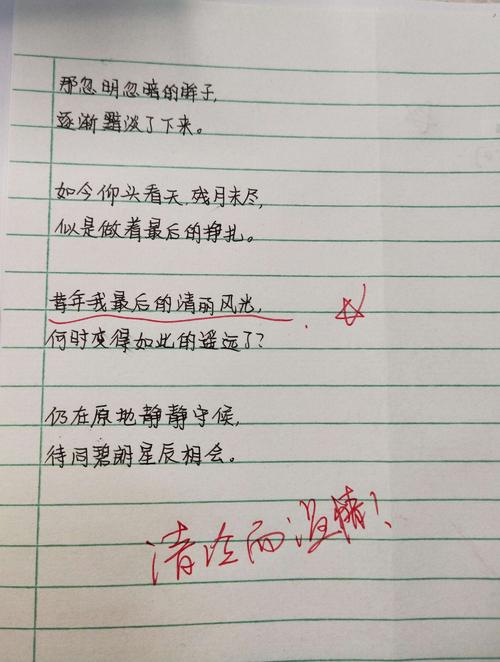 那忽明忽暗的眸子,
逐渐黯淡了下来。
如今仰头看天,残月未尽,
似是做着最后的挣扎。
昔年我最后的清丽风光,
何时变得如此的遥远了?
仍在原地静静守候,
待同碧朗星辰相会。
清冷而温情!